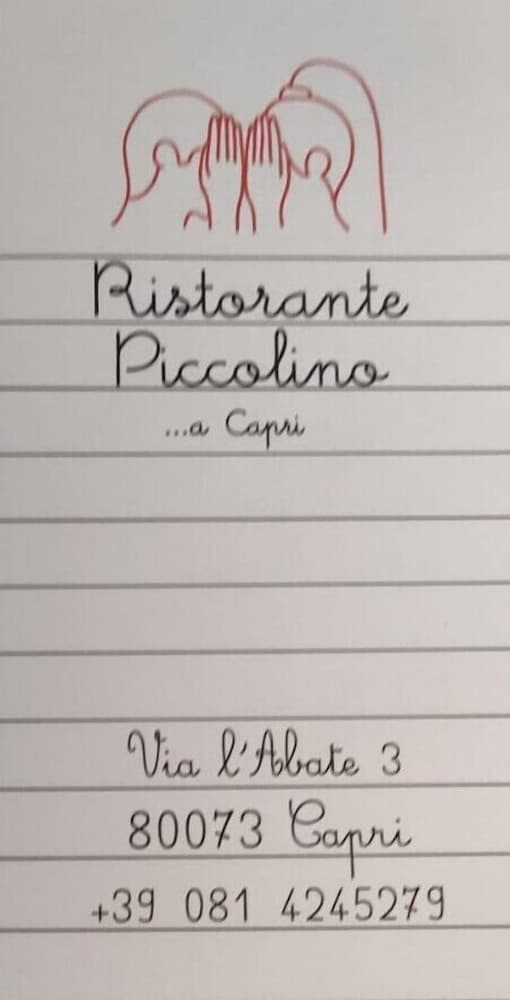 Ristorante
Piccolino
...a Capri
Via l'Abate 3
80073 Capri
+39 081 4245279